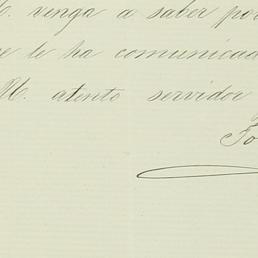 venga a saber por
le ha comunicad
M. atento servidor